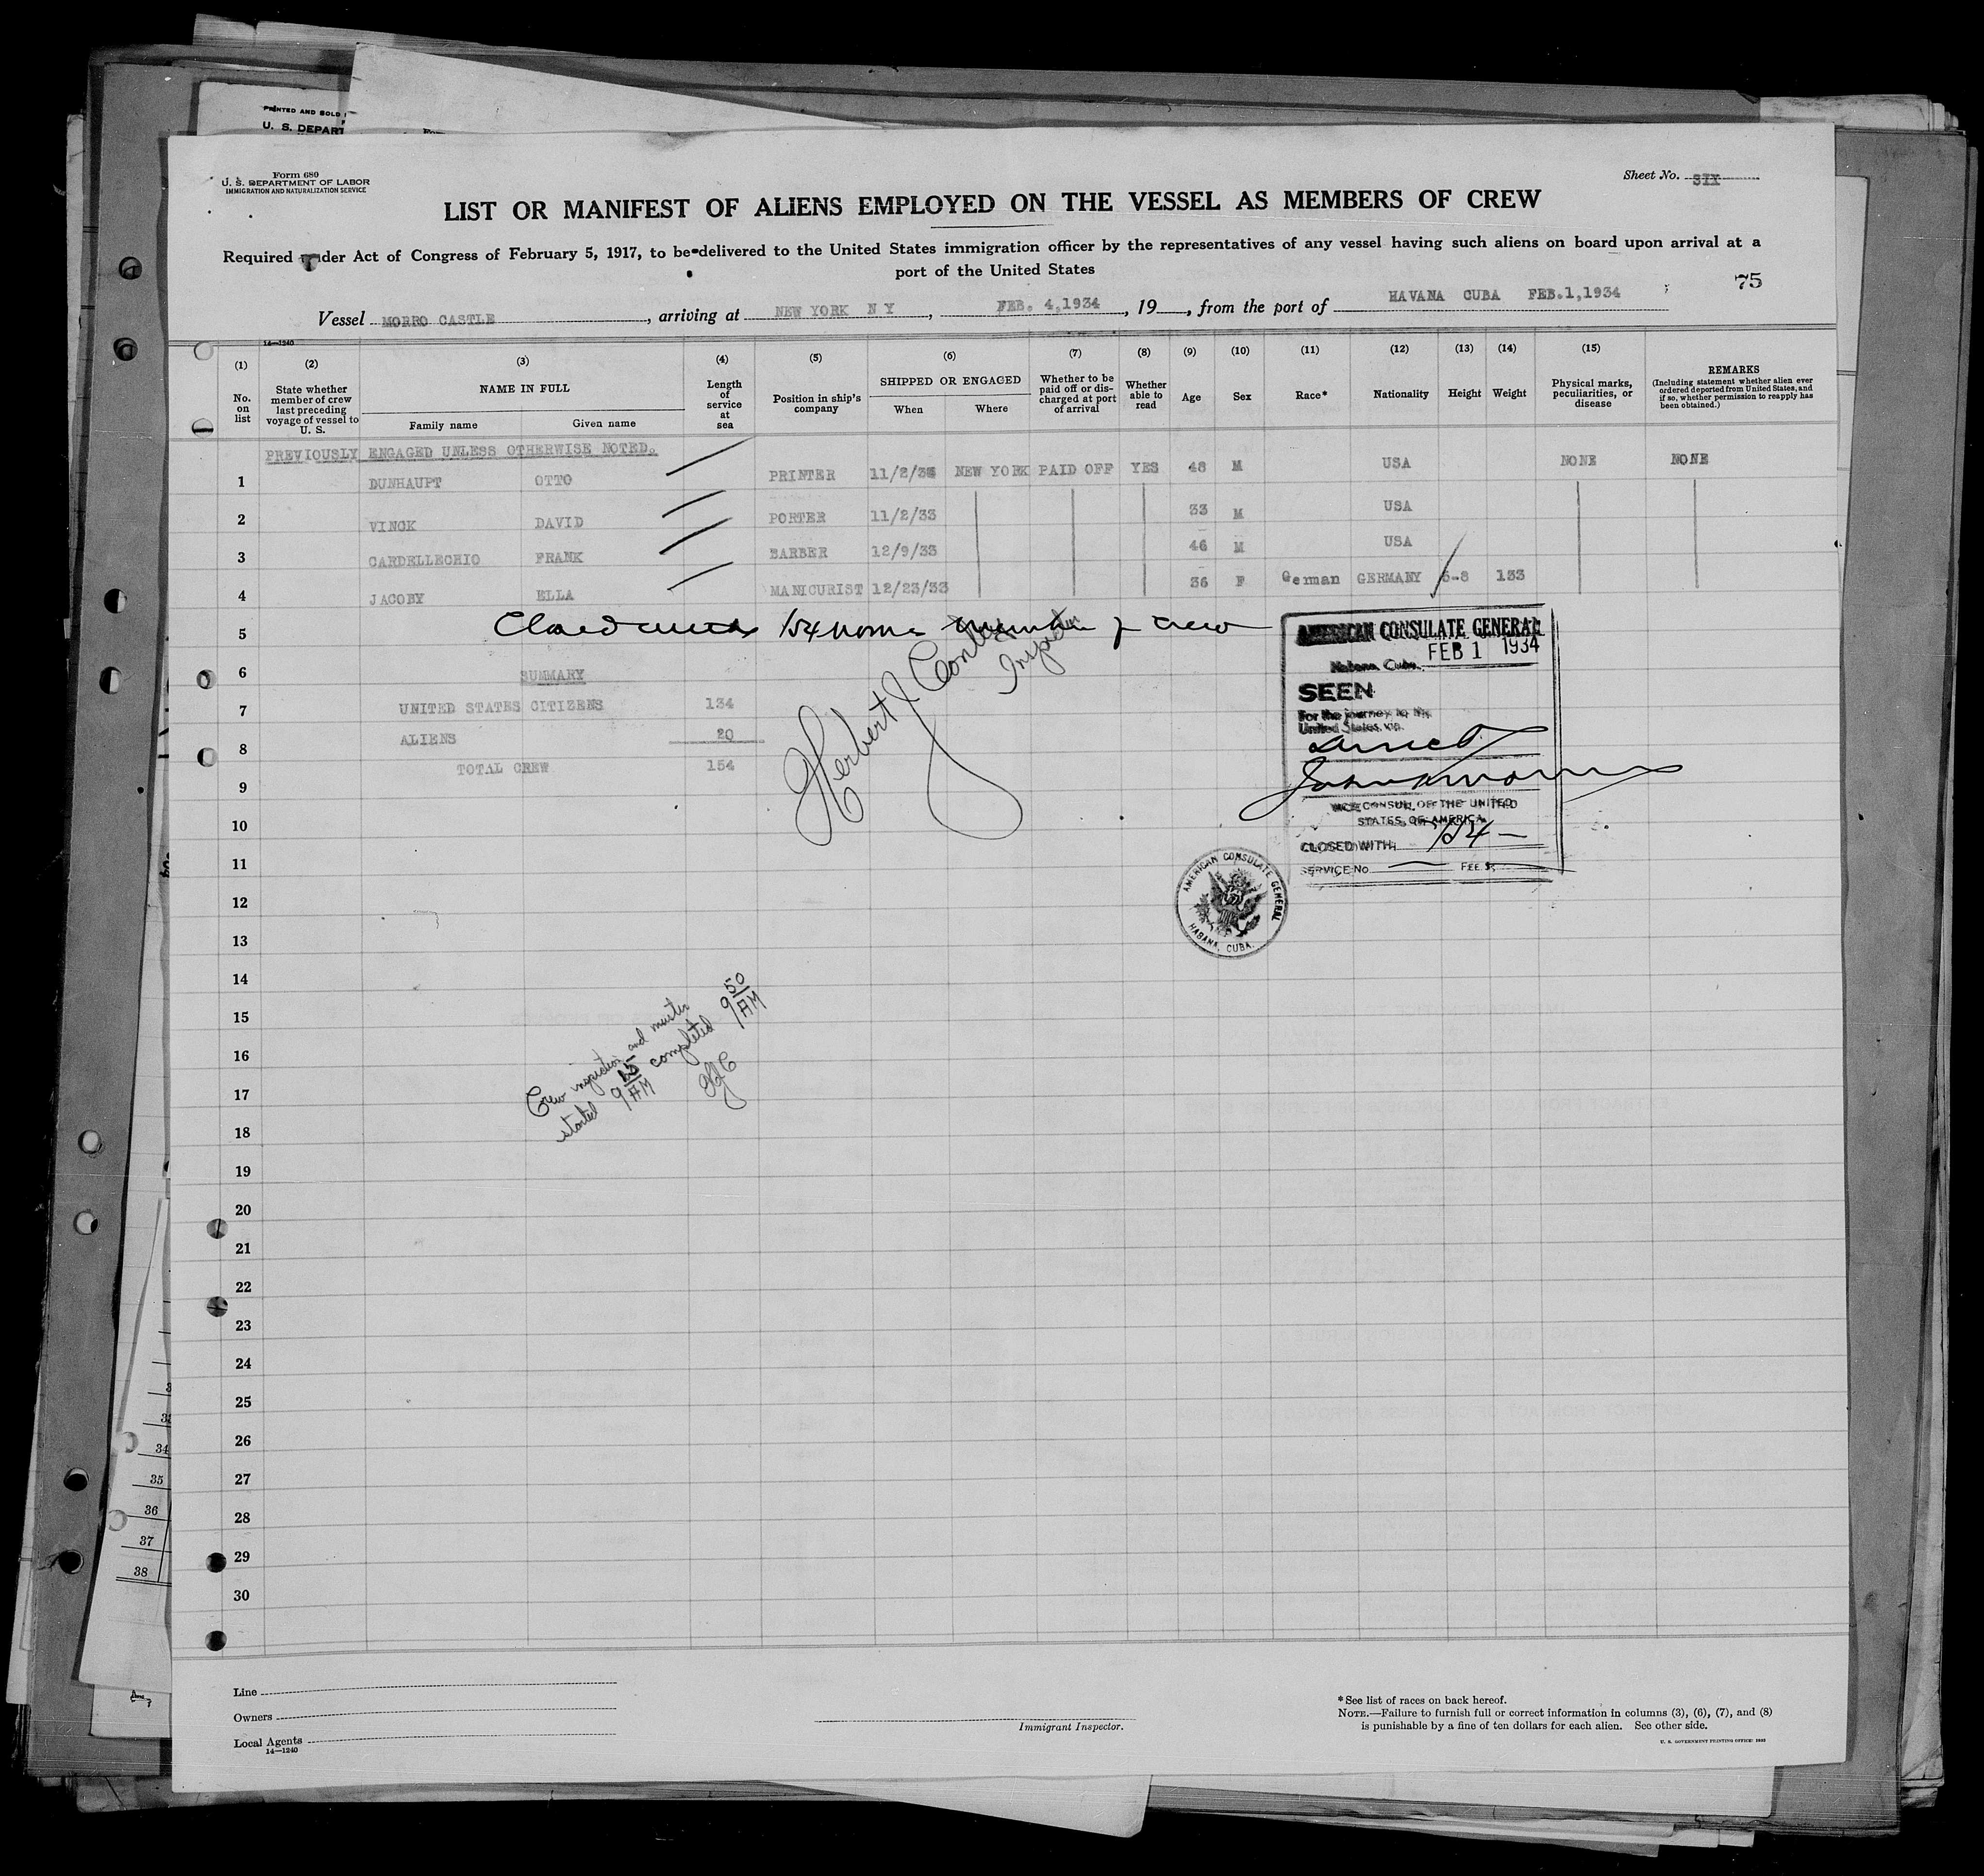 PRINTED AND SOLD
U. S. DEPART
Form 680
U. S. DEPARTMENT OF LABOR
IMMIGRATION AND NATURALIZATION SERVICE
Sheet No. SIX
LIST OR MANIFEST OF ALIENS EMPLOYED ON THE VESSEL AS MEMBERS OF CREW
Required under Act of Congress of February 5, 1917, to be delivered to the United States immigration officer by the representatives of any vessel having such aliens on board upon arrival at a
port of the United States
75
Vessel MORRO CASTLE, arriving at NEW YORK N Y, FEB. 4,1934, 19, from the port of HAVANA CUBA FEB.1,1934
14—1240
(1) (2) (3) (4) (5) (6) (7) (8) (9) (10) (11) (12) (13) (14) (15)
No. on list
State whether member of crew last preceding voyage of vessel to U. S.
NAME IN FULL
Family name
Given name
Length of service at sea
Position in ship's company
SHIPPED OR ENGAGED
When
Where
Whether to be paid off or discharged at port of arrival
Whether able to read
Age
Sex
Race*
Nationality
Height
Weight
Physical marks, peculiarities, or disease
REMARKS
(Including statement whether alien ever ordered deported from United States, and if so, whether permission to reapply has been obtained.)
PREVIOUSLY ENGAGED UNLESS OTHERWISE NOTED.
1 DUNHAUPT OTTO PRINTER 11/2/33 NEW YORK PAID OFF YES 48 M USA NONE NONE
2 VINCK DAVID PORTER 11/2/33 33 M USA
3 CARDELLECHIO FRANK BARBER 12/9/33 46 M USA
4 JACOBY ELLA MANICURIST 12/23/33 36 F German GERMANY 5-8 133
5 Closed with 154 names member of crew
Herbert J
6 SUMMARY
7 UNITED STATES CITIZENS 134
8 ALIENS 20
9 TOTAL CREW 154
10
11
12
13
14
15
16
17
18
19
20
21
22
23
24
25
26
27
28
29
30
AMERICAN CONSULATE GENERAL
FEB 1 1934
Habana, Cuba.
SEEN
For the journey to the
United States via
Direct
VICE CONSUL OF THE UNITED
STATES OF AMERICA
CLOSED WITH 154
SERVICE No FEE $
AMERICAN CONSULATE GENERAL
HABANA, CUBA.
Crew inspection and muster
started 9 15 AM completed 9 50 AM
HJC
34
35
36
37
38
Line
Owners
Local Agents
14—1240
Immigrant Inspector.
* See list of races on back hereof.
NOTE.—Failure to furnish full or correct information in columns (3), (6), (7), and (8)
is punishable by a fine of ten dollars for each alien. See other side.
U. S. GOVERNMENT PRINTING OFFICE: 1933